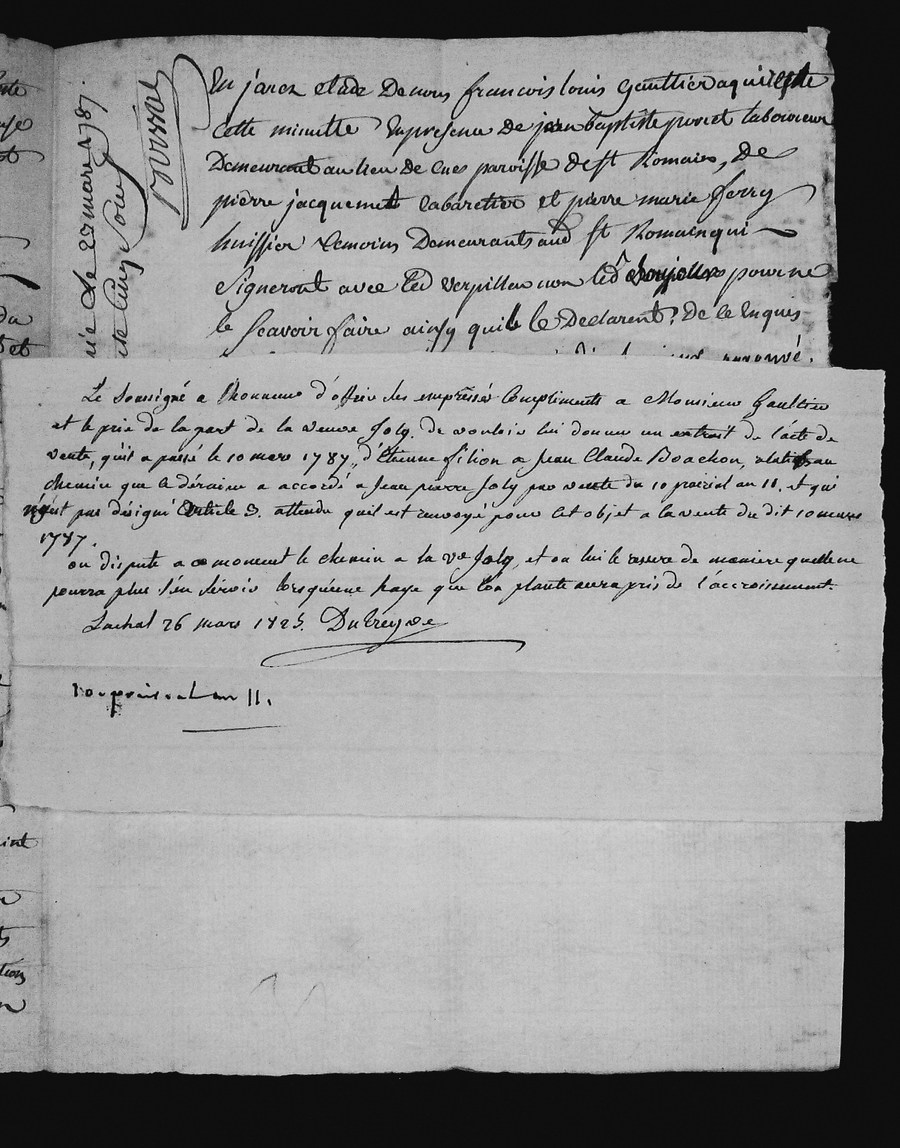 En jarez etude De nous francois louis Gaultier a qui est
Cette minutte En presence de jean baptiste poncet laboureur
Demeurant au lieu de cues paroisse de st Romain, De
pierre jacquemet cabaretier et pierre marie ferry
huissier temoins Demeurants aud st Romain qui
Signeront avec led verpilleu non led pour ne
le Scavoir faire ainsy quil le Declarent, De ce Enquis
Le Soussigné a l'honneur d'offrir ses empressés Compliments a Monsieur Gaultier
et le prie de la part de la veuve Joly, de vouloir lui donner un extrait de l'acte de
vente, qu'il a passé le 10 mars 1787, d'Etienne filion a Jean Claude Boachon, relatif au
chemin que le dernier a accordé a Jean pierre Joly par vente du 10 prairial an 11. et qui
n'est pas désigné Article 3. attendu quil est renvoyé pour cet objet a la vente du dit 10 mars
1787.
on dispute a ce moment le chemin a la ve Joly, et on lui le resere de maniere quelle ne
pourra plus s'en servir lorsqu'une haye que l'on plante aura pris de l'accroissement.
Lachal 26 mars 1825. Dutreyve
10 prairial an 11.
le 23 mars 1787.